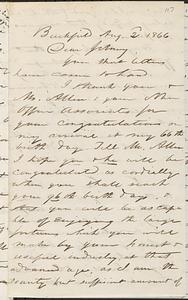 117
Buckfield Aug. 2. 1866
Dear Johnny,
Your three letters
have come to hand.
I thank you &
Mr. Allen & your other
Office Associates for
Congratulations on
my arrival at my 66th
birth day. Tell Mr. Allen
I hope you & he will be
congratulated as cordially
when you shall reach
your 96th birth day &
that you will be as capa-
ble of Enjoying the large
fortune which you will
make by your honest &
useful industry, at that
advanced age, as I am the
scanty but sufficient amount of